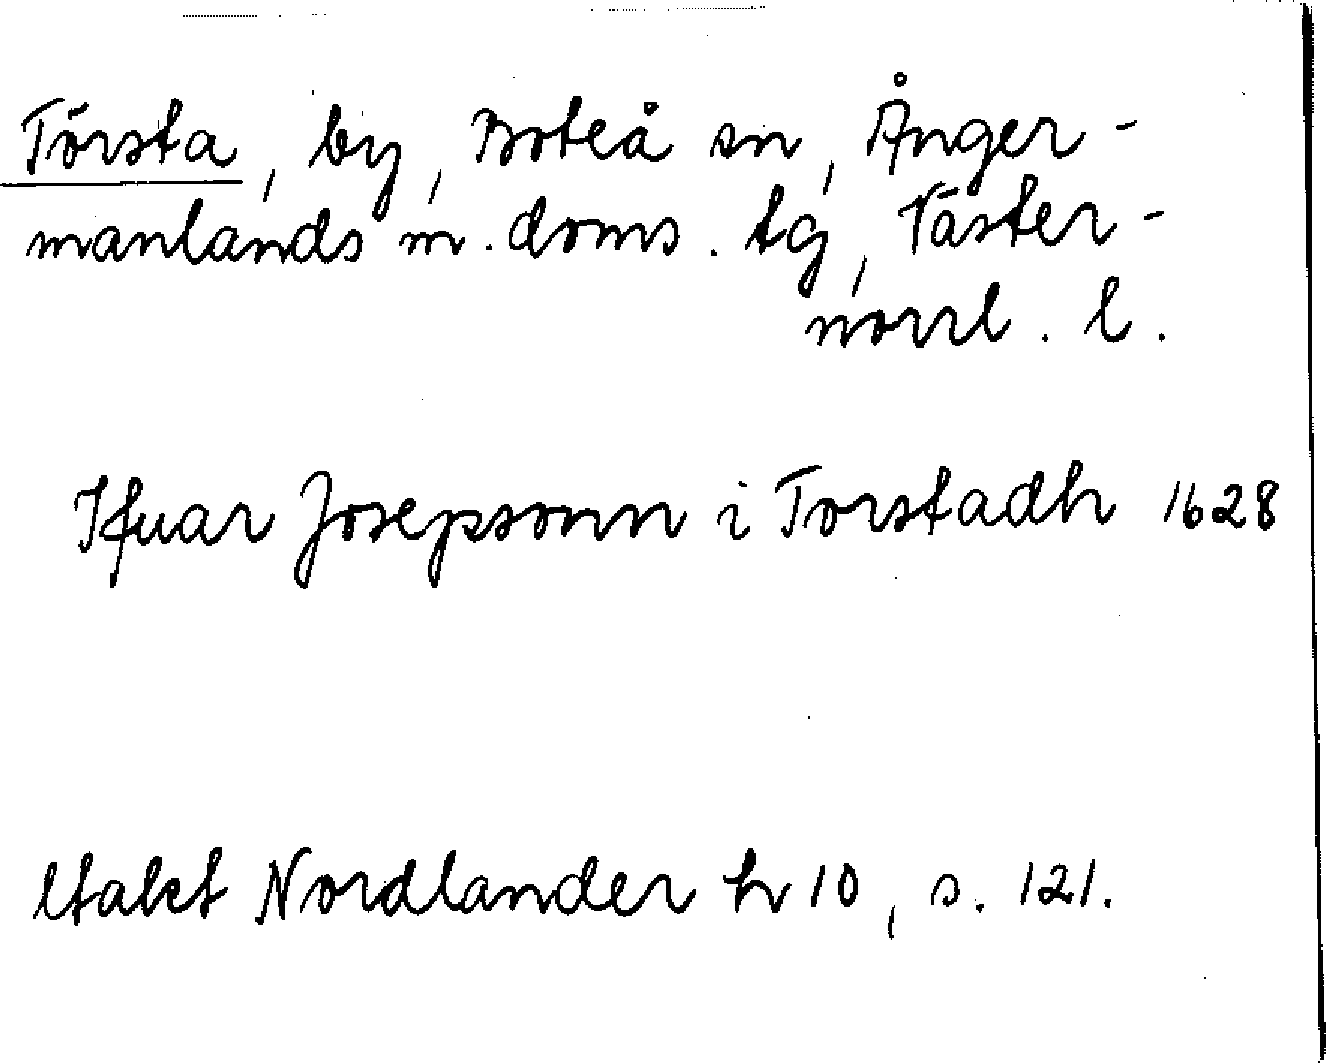 Törsta, by, Boteå sn, Ånger-
manlands m. doms. tg, Väster-
norrl. l.
Ifuar Josepsonn i Torstadh 1628
Nordlander h 10, s. 121.